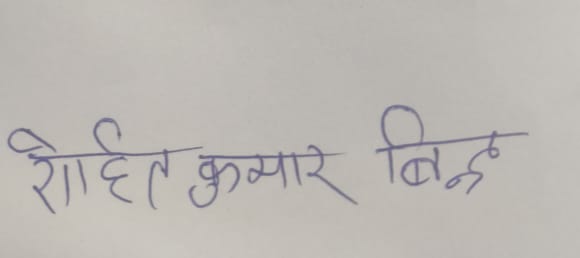 रोहित कुमार बिन्द